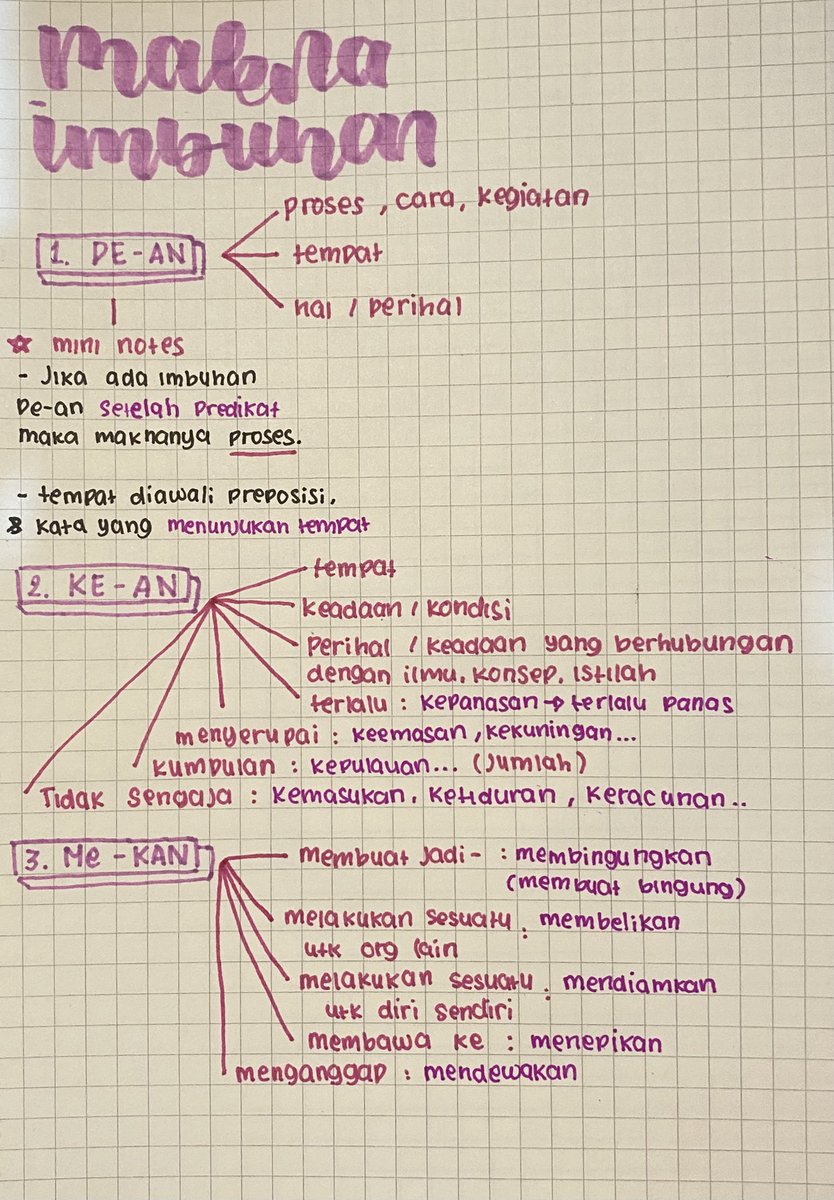 makna
imbuhan
1. PE-AN
proses, cara, kegiatan
tempat
hal / perihal
☆ mini notes
- Jika ada imbuhan
pe-an setelah predikat
maka maknanya proses.
- tempat diawali preposisi,
& kata yang menunjukan tempat
2. KE-AN
tempat
keadaan / kondisi
perihal / keadaan yang berhubungan
dengan ilmu, konsep, istilah
terlalu : kepanasan → terlalu panas
menyerupai : keemasan, kekuningan...
kumpulan : kepulauan... (jumlah)
Tidak sengaja : kemasukan, ketiduran, keracunan..
3. Me-KAN
membuat jadi- : membingungkan
(membuat bingung)
melakukan sesuatu : membelikan
utk org lain
melakukan sesuatu : mendiamkan
utk diri sendiri
membawa ke : menepikan
menganggap : mendewakan